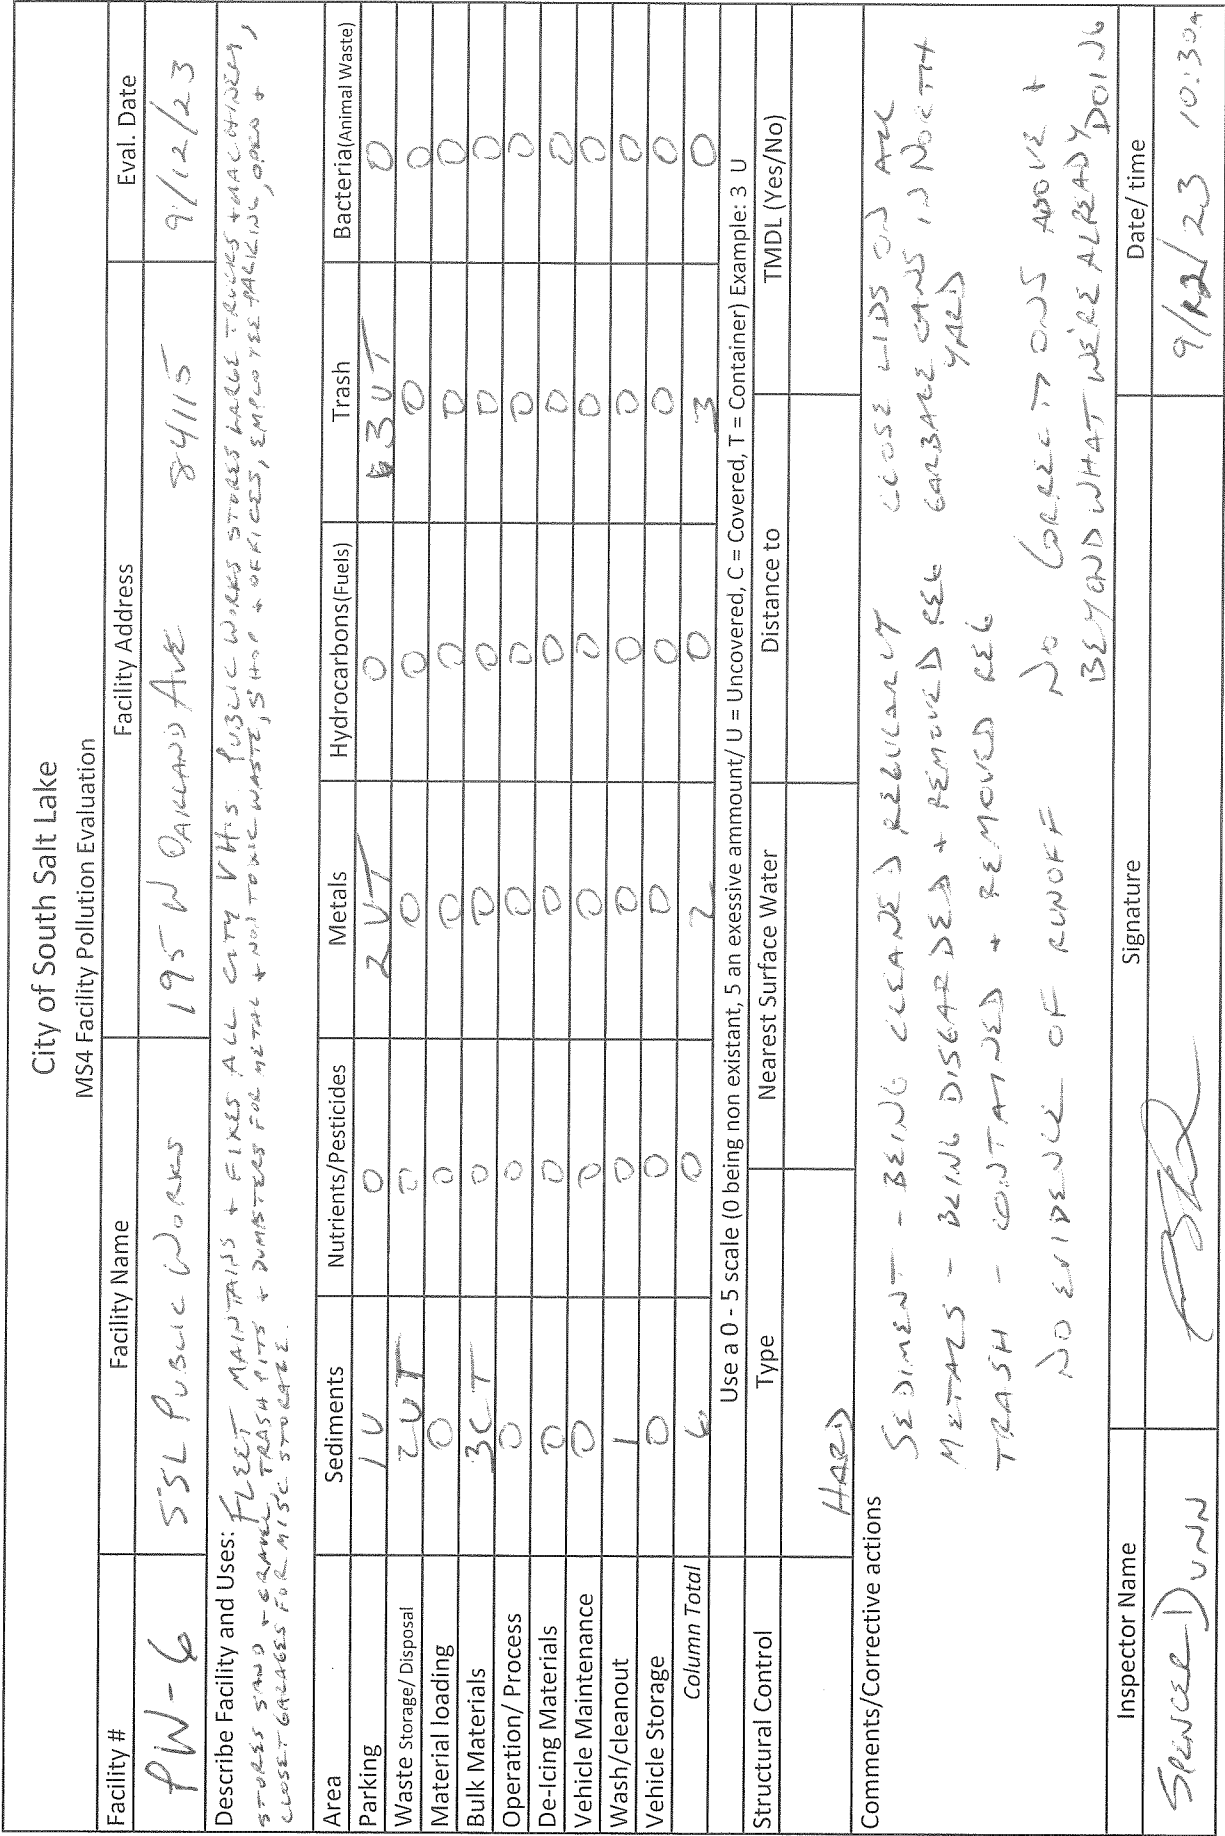 City of South Salt Lake
MS4 Facility Pollution Evaluation
Facility # Facility Name Facility Address Eval. Date
PW-6 SSL PUBLIC WORKS 195 W OAKLAND AVE 84115 9/12/23
Describe Facility and Uses: FLEET MAINTAINS + FIXES ALL CITY VH'S PUBLIC WORKS STORES LARGE TRUCKS + MACHINERY,
STORES SAND + GRAVEL, TRASH PITS + DUMSTERS FOR METAL + NON TOXIC WASTE, SHOP + OFFICES, EMPLOYEE PARKING, OPEN +
CLOSET GARAGES FOR MISC STORAGE.
Area Sediments Nutrients/Pesticides Metals Hydrocarbons(Fuels) Trash Bacteria(Animal Waste)
Parking 1 U 0 2 UT 0 3 UT 0
Waste Storage/ Disposal 2 UT 0 0 0 0 0
Material loading 0 0 0 0 0 0
Bulk Materials 3 CT 0 0 0 0 0
Operation/ Process 0 0 0 0 0 0
De-Icing Materials 0 0 0 0 0 0
Vehicle Maintenance 0 0 0 0 0 0
Wash/cleanout 1 0 0 0 0 0
Vehicle Storage 0 0 0 0 0 0
Column Total 6 0 2 0 3 0
Use a 0 - 5 scale (0 being non existant, 5 an exessive ammount/ U = Uncovered, C = Covered, T = Container) Example: 3 U
Structural Control Type Nearest Surface Water Distance to TMDL (Yes/No)
HARD
Comments/Corrective actions
SEDIMENT - BEING CLEANED REGULARLY CLOSE LIDS ON ALL
METALS - BEING DISGARDED + REMOVED REG GARBAGE CANS IN NORTH
YARD
TRASH - CONTAINED + REMOVED REG
NO EVIDENCE OF RUNOFF NO CORRECTIONS ABOVE +
BEYOND WHAT WE'RE ALREADY DOING
Inspector Name Signature Date/ time
SPENCER DUNN 9/12/23 10:30A